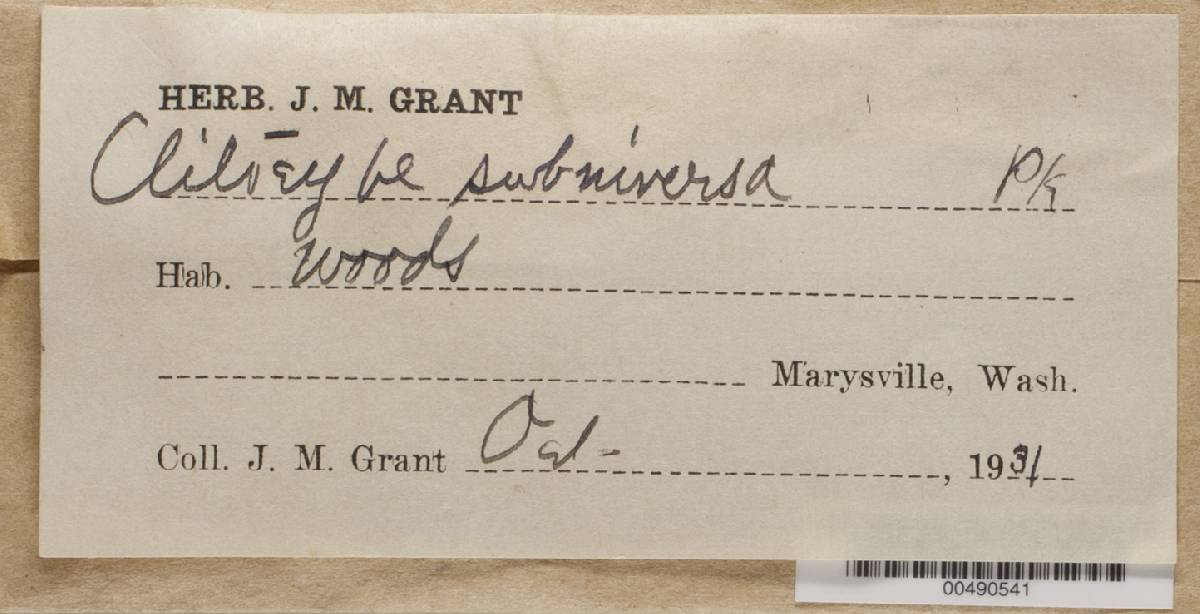 HERB. J. M. GRANT
Clitocybe subniversa Pk
Hab. woods
Marysville, Wash.
Coll. J. M. Grant Oct-, 1931
00490541